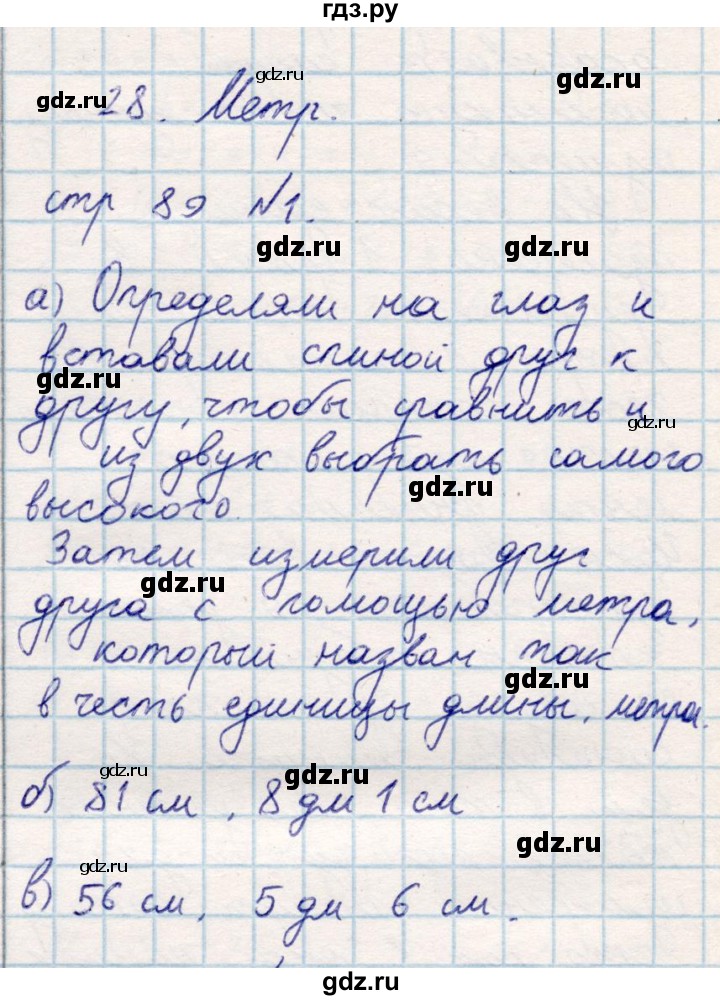 гдз.ру
gdz.ru
gdz.ru
gdz.ru
28. Метр.
стр 89 №1.
gdz.ru
gdz.ru
а) Определяли на глаз и
вставали спиной друг к
gdz.ru
другу, чтобы сравнить и
gdz.ru
из двух выбрать самого
gdz.ru
высокого.
Затем измерили друг
gdz.ru
друга с помощью метра,
который назван так
gdz.ru
в честь единицы длины, метра.
gdz.ru
gdz.ru
б) 81 см, 8 дм 1 см
gdz.ru
gdz.ru
в) 56 см, 5 дм 6 см.
gdz.ru